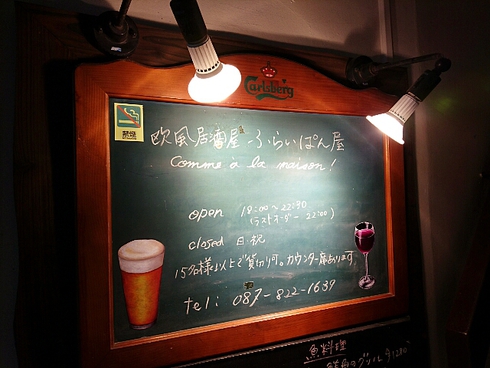 Carlsberg
禁煙
欧風居酒屋 ふらいぱん屋
Comme à la maison!
open 18:00〜22:30
(ラストオーダー 22:00)
closed 日・祝
15名様以上で貸切り可。カウンター席あります
tel: 087-822-1639
魚料理